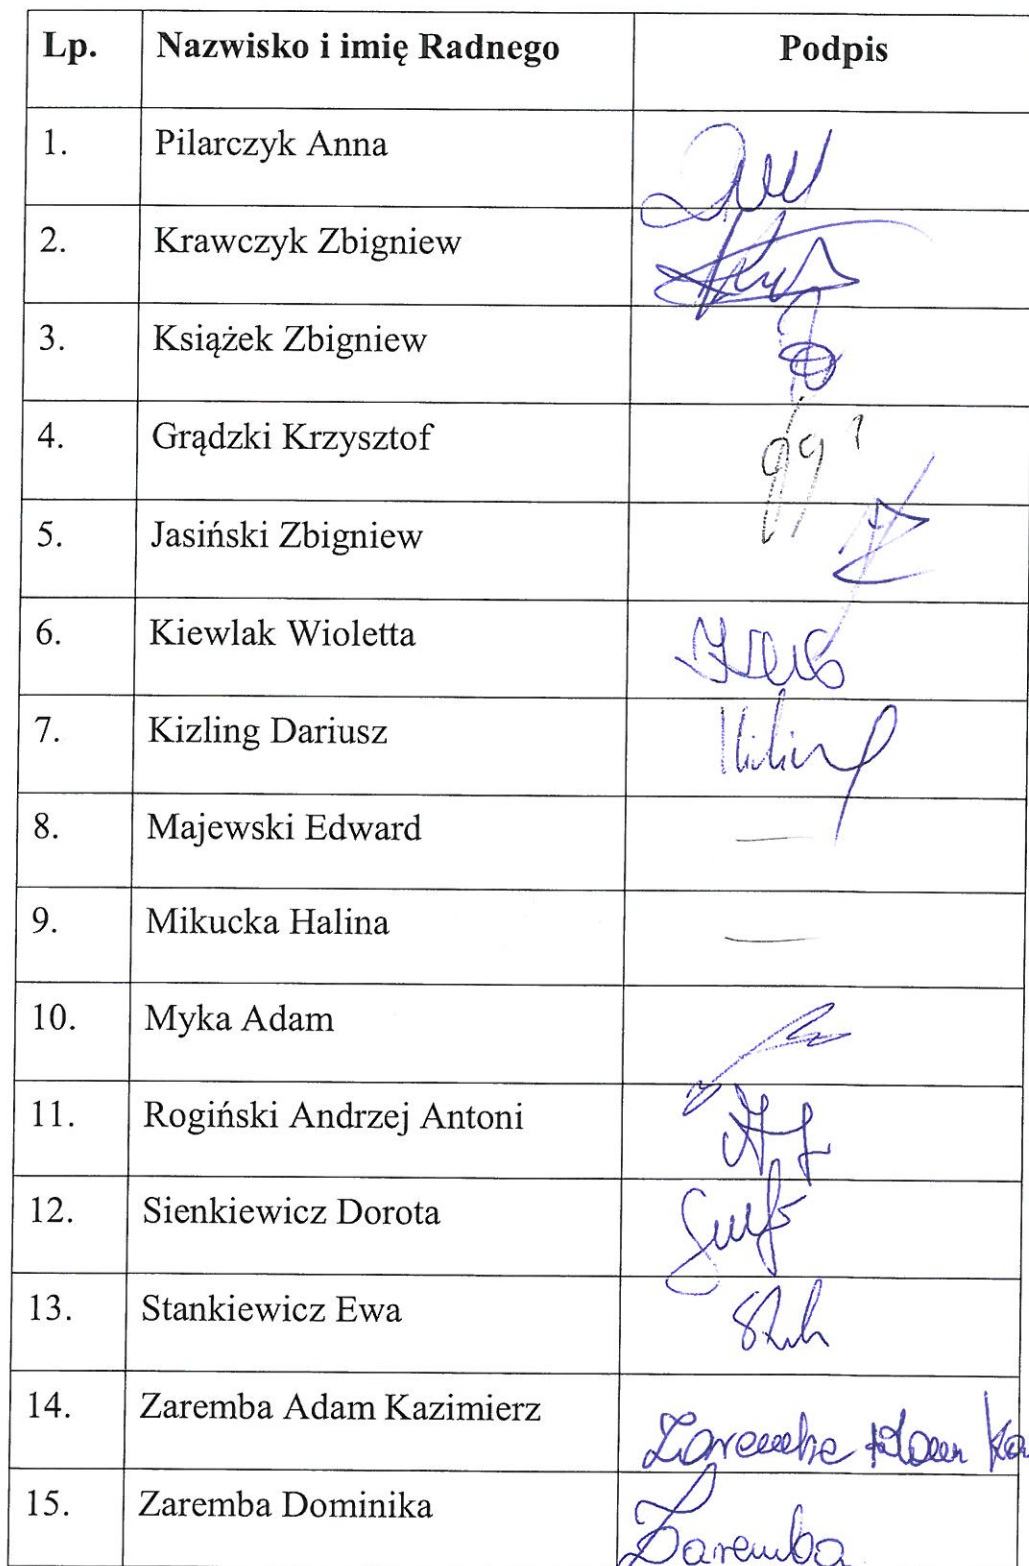 Lp. Nazwisko i imię Radnego Podpis
1. Pilarczyk Anna
2. Krawczyk Zbigniew
3. Książek Zbigniew
4. Grądzki Krzysztof
5. Jasiński Zbigniew
6. Kiewlak Wioletta
7. Kizling Dariusz
8. Majewski Edward —
9. Mikucka Halina —
10. Myka Adam
11. Rogiński Andrzej Antoni
12. Sienkiewicz Dorota
13. Stankiewicz Ewa
14. Zaremba Adam Kazimierz Zaremba Adam
15. Zaremba Dominika Zaremba